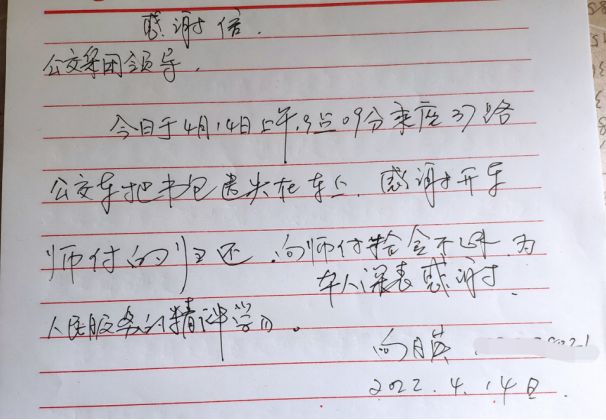 感谢信.
公交集团领导.
今日于4月.14日上午.9点09分乘座37路
公交车把书包遗失在车上.感谢开车
师付的归还.向师付拾金不昧.为
本人深表感谢.
人民服务的精神学习。
向月英
2022.4.14日.